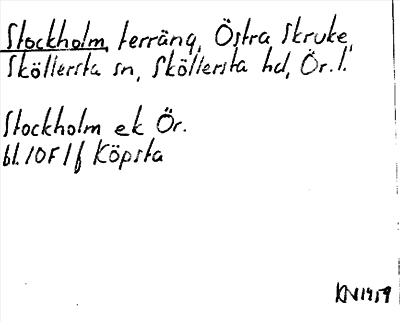 Stockholm, terräng, Östra Skruke,
Sköllersta sn, Sköllersta hd, Ör. l.
Stockholm ek Ör.
bl. 10F1f Köpsta
KN1959